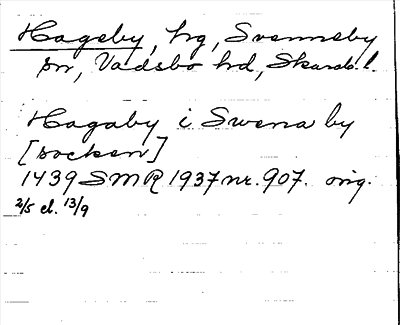 Hageby, hg, Svenneby
sn, Vadsbo hd, Skarab. l.
Hagaby i Swena by
[socken]
1439 SMR 1937 nr. 907. orig.
2/5 el. 13/9